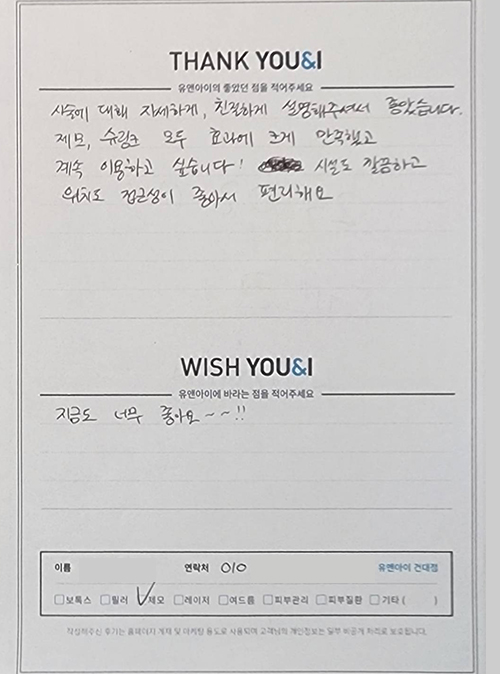 THANK YOU&I
유앤아이의 좋았던 점을 적어주세요
시술에 대해 자세하게, 친절하게 설명해주셔서 좋았습니다.
제모, 슈링크 모두 효과에 크게 만족했고
계속 이용하고 싶습니다! 시설도 깔끔하고
위치도 접근성이 좋아서 편리해요
WISH YOU&I
유앤아이에 바라는 점을 적어주세요
지금도 너무 좋아요~~!!
이름 연락처 010 유앤아이 건대점
☐보톡스 ☐필러 ☑제모 ☐레이저 ☐여드름 ☐피부관리 ☐피부질환 ☐기타 ( )
작성해주신 후기는 홈페이지 게재 및 마케팅 용도로 사용되며 고객님의 개인정보는 일부 비공개 처리로 보호됩니다.